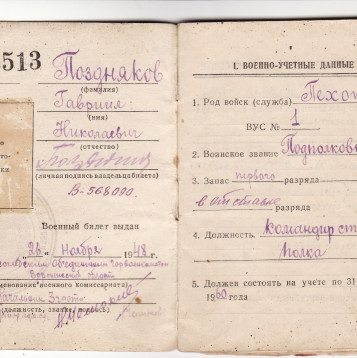 3513
Поздняков
(фамилия)
Гавриил
(имя)
Николаевич
(отчество)
(личная подпись владельца билета)
В-568090.
Военный билет выдан
"26" Ноября 1948 г.
(наименование военного комиссариата)
Начальник 3 части
(должность, звание / подпись)
1. ВОЕННО-УЧЕТНЫЕ ДАННЫЕ
1. Род войск (служба) Пехот
ВУС № 1
2. Воинское звание Подполков
3. Запас первого разряда
в отставке
4. Должность командир ст
полка
5. Должен состоять на учете по 31
1960 года